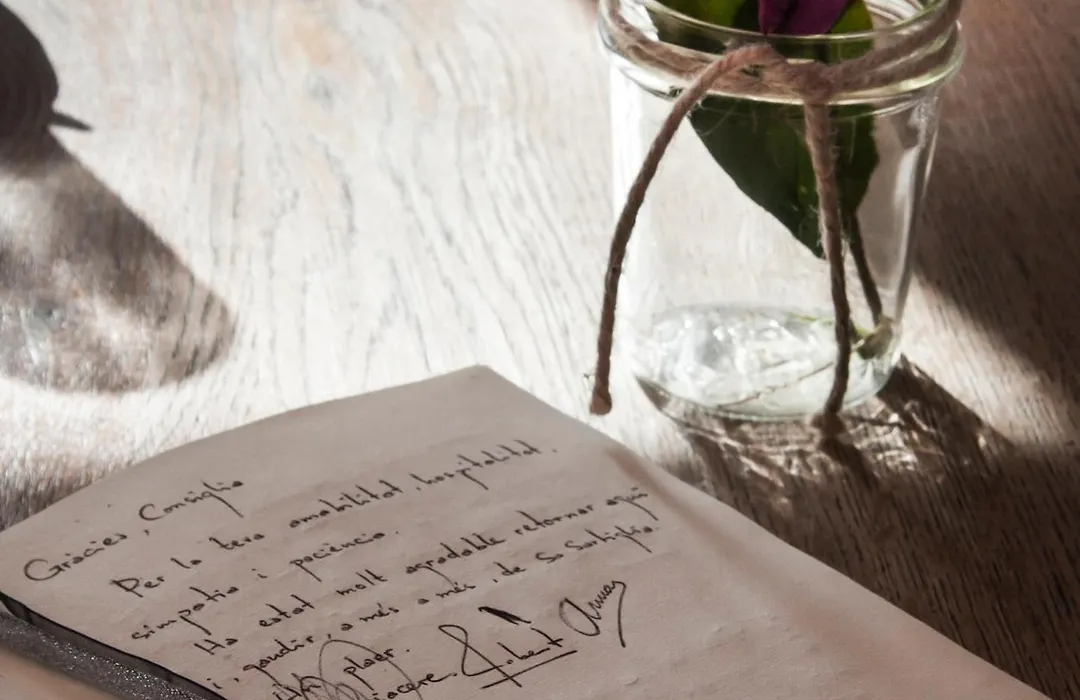 Gràcies, Consiglia
Per la teva amabilitat, hospitalitat,
simpatia i paciència.
Ha estat molt agradable retornar aquí
i, gaudir, a més a més, de Sa Sartiglia.
plaer.
Robert Arnay